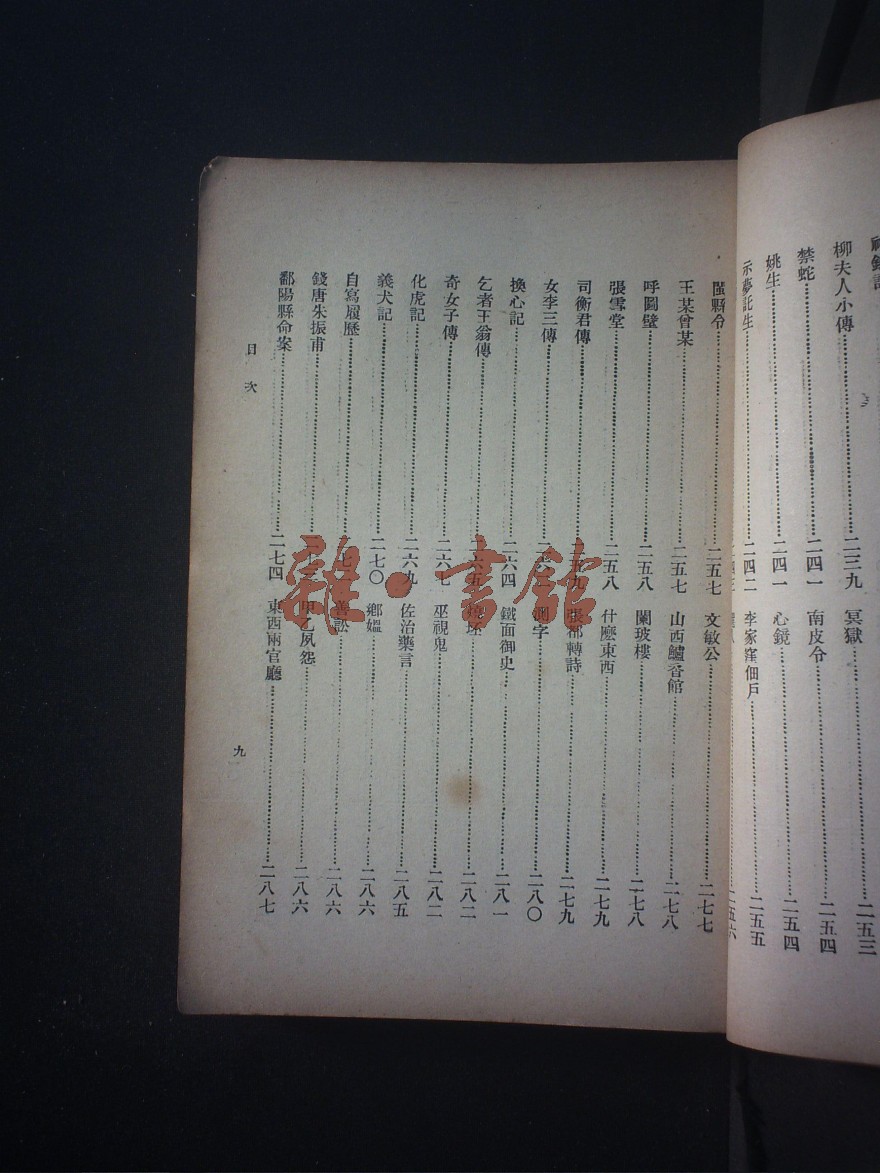 柳夫人小傳……二三九
禁蛇……二四一
姚生……二四一
示夢託生……二四二
冥獄……二五三
南皮令……二五四
心鏡……二五四
李家窪佃戶……二五五
二五六
縣令……二五七
王某曾某……二五七
呼圖壁……二五八
張雪堂……二五八
司衡君傳……二五九
女李三傳……二六
換心記……二六四
乞者王翁傳……二六五
奇女子傳……二六七
化虎記……二六九
義犬記……二七〇
自寫履歷……七
錢唐朱振甫……二
鄱陽縣命案……二七四
文敏公……二七七
山西鱸香館……二七八
闌玻樓……二七八
什麼東西……二七九
張郁轉詩……二七九
字……二八〇
鐵面御史……二八一
坯……二八二
巫視鬼……二八二
佐治藥言……二八五
鄉媼……二八六
善訟……二八六
甲乙夙怨……二八六
東西兩官廳……二八七
目次
九
雜·書館